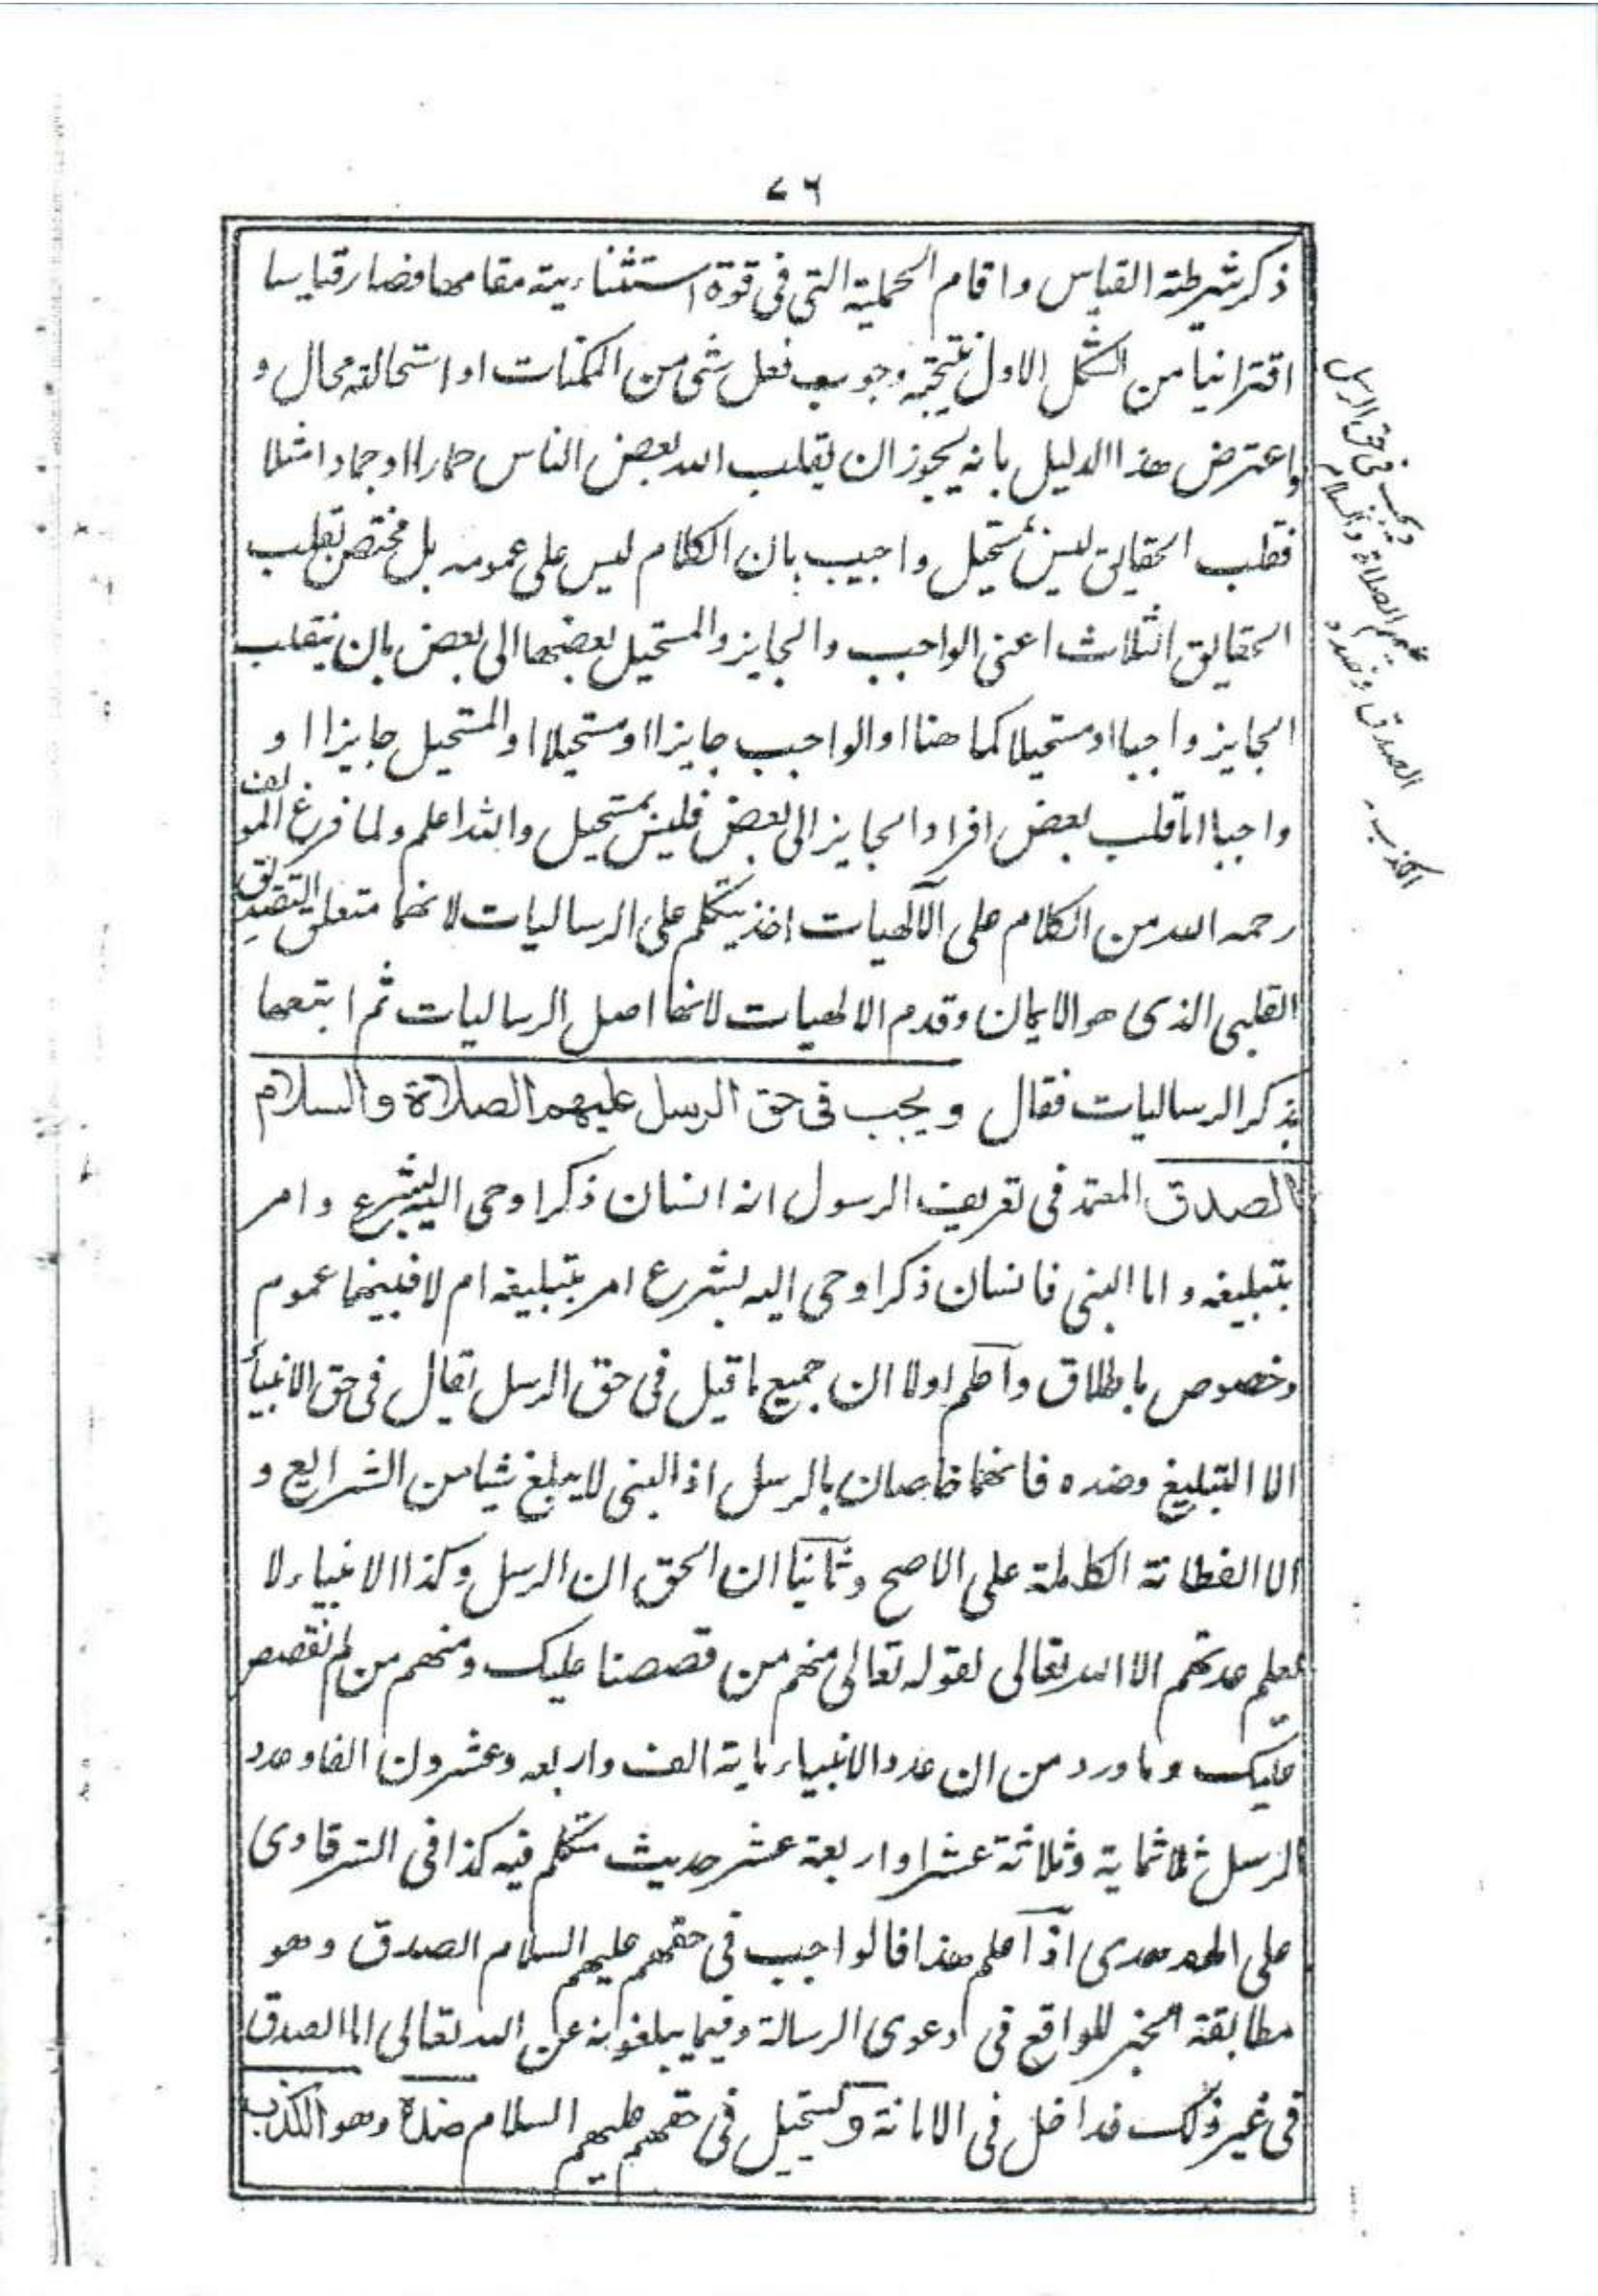 ٧٦
ذكر شرطية القياس واقام الحملية التى فى قوة استثنائية مقامها فصار قياسا
اقترانيا من الشكل الاول نتيجته وجوب فعل شئ من الممكنات او استحالته محال و
واعترض هذا الدليل بانه يجوز ان يقلب الله بعض الناس حمارا او جمادا مثلا
فقلب الحقايق ليس بمستحيل واجيب بان الكلام ليس على عمومه بل مختص بقلب
الحقايق الثلاث اعنى الواجب والجايز والمستحيل بعضها الى بعض بان ينقلب
الجايز واجبا او مستحيلا كما هنا او الواجب جايزا او مستحيلا او المستحيل جايزا او
واجبا اما قلب بعض افراد الجايز الى بعض فليس بمستحيل والله اعلم ولما فرغ المولف
رحمه الله من الكلام على الآلهيات اخذ يتكلم على الرساليات لانهما متعلق التصديق
القلبى الذى هو الايمان وقدم الالهيات لانها اصل الرساليات ثم اتبعها
بذكر الرساليات فقال ويجب فى حق الرسل عليهم الصلاة والسلام
الصدق المعتمد فى تعريف الرسول انه انسان ذكر اوحى اليه بشرع وامر
بتبليغه واما النبى فانسان ذكر اوحى اليه بشرع امر بتبليغه ام لا فبينهما عموم
وخصوص باطلاق واعلم اولا ان جميع ما قيل فى حق الرسل يقال فى حق الانبيأ
الا التبليغ وضده فانهما خاصان بالرسل اذ النبى لا يبلغ شيا من الشرايع و
الا الفطانة الكاملة على الاصح وثانيا ان الحق ان الرسل وكذا الانبياء لا
يعلم عدتهم الا الله تعالى لقوله تعالى منهم من قصصنا عليك ومنهم من لم نقصص
عليك وما ورد من ان عدد الانبياء ماية الف واربعه وعشرون الفا وعدد
الرسل ثلاثماية وثلاثة عشر او اربعة عشر حديث متكلم فيه كذا فى الشرقاوى
على الهدهدى اذا علم هذا فالواجب فى حقهم عليهم السلام الصدق وهو
مطابقة الخبر للواقع فى دعوى الرسالة وفيما يبلغونه عن الله تعالى اما الصدق
فى غير ذلك فداخل فى الامانة ويستحيل فى حقهم عليهم السلام ضده وهو الكذب
ويجب فى حق الرسل
عليهم الصلاة والسلام
الصدق وضده
الكذب